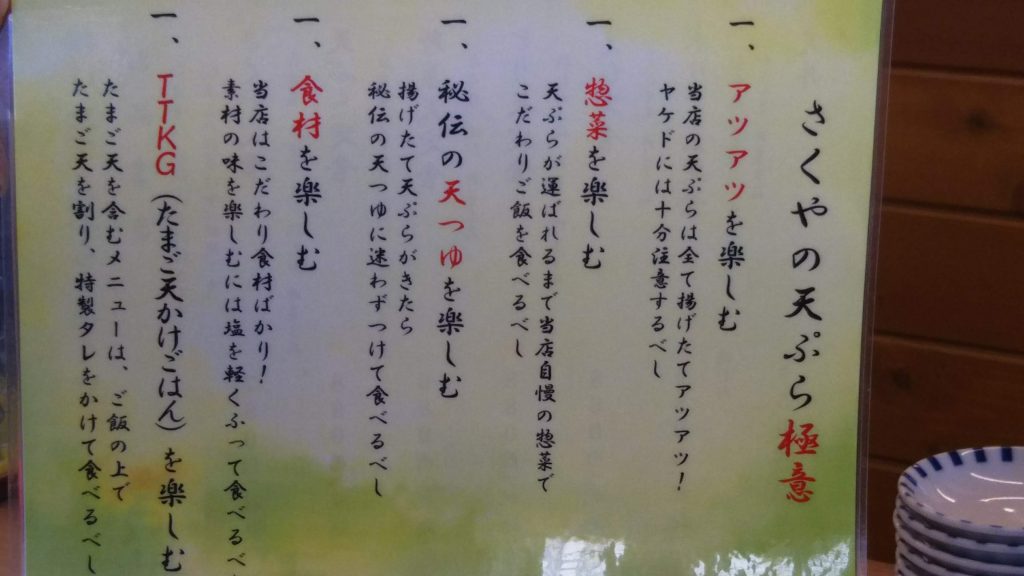 さくやの天ぷら極意
一、アツアツを楽しむ
当店の天ぷらは全て揚げたてアツアツ！
ヤケドには十分注意するべし
一、惣菜を楽しむ
天ぷらが運ばれるまで当店自慢の惣菜で
こだわりご飯を食べるべし
一、秘伝の天つゆを楽しむ
揚げたて天ぷらがきたら
秘伝の天つゆに迷わずつけて食べるべし
一、食材を楽しむ
当店はこだわり食材ばかり！
素材の味を楽しむには塩を軽くふって食べるべ
一、TTKG（たまご天かけごはん）を楽しむ
たまご天を含むメニューは、ご飯の上で
たまご天を割り、特製タレをかけて食べるべし